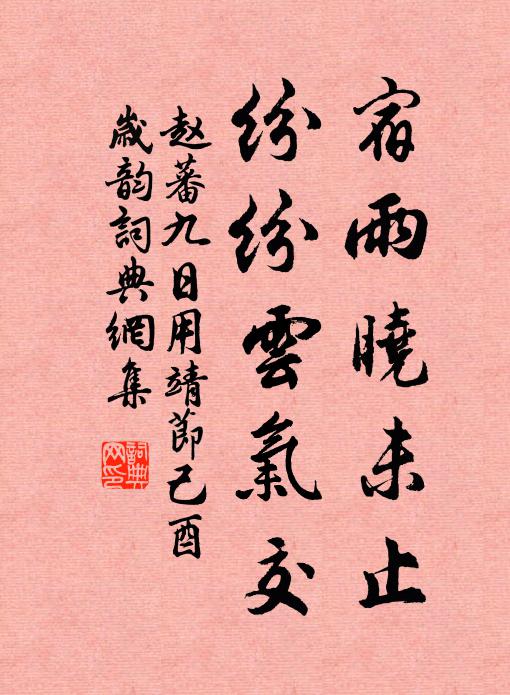 宿雨曉未止
紛紛雲氣交
赵蕃九日用靖節己酉
歲韵詞典網集
詞典网印